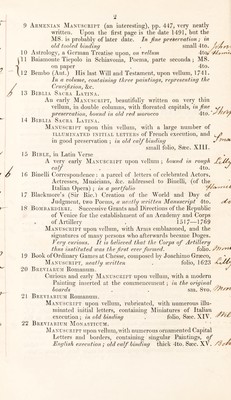 2
9 ARMENIAN MANUSCRIPT (an interesting), pp. 447, very neatly
written. Upon the first page is the date 1491, but the
MS. is probably of later date. In fine preservation; in
old tooled binding small 4to.
10 Astrology, a German Treatise upon, on vellum 4to
11 Baiamonte Tiepolo in Schiavonia, Poema, parte seconda; MS.
on paper 4to.
12 Bembo (Ant.) His last Will and Testament, upon vellum, 1741.
In a volume, containing three paintings, representing the
Crucifixion, &c.
13 BIBLIA SACRA LATINA.
An early MANUSCRIPT, beautifully written on very thin
vellum, in double columns, with floreated capitals, in fine
preservation, bound in old red morocco 4to.
14 BIBLIA SACRA LATINA.
MANUSCRIPT upon thin vellum, with a large number of
ILLUMINATED INITIAL LETTERS of French execution, and
in good preservation; in old calf binding
small folio, Sæc. XIII.
15 BIBLE, in Latin Verse
A very early MANUSCRIPT upon vellum; bound in rough
calf 4to.
16 Binelli Correspondence: a parcel of letters of celebrated Actors,
Actresses, Musicians, &c. addressed to Binelli, (of the
Italian Opera); in a portfolio
17 Blackmore's (Sir Ric.) Creation of the World and Day of
Judgment, two Poems, a neatly written Manuscript 4to.
18 BOMBARDIERI. Successive Grants and Directions of the Republic
of Venice for the establishment of an Academy and Corps
of Artillery 1517—1769
MANUSCRIPT upon vellum, with Arms emblazoned, and the
signatures of many persons who afterwards became Doges.
Very curious. It is believed that the Corps of Artillery
thus instituted was the first ever formed. folio.
19 Book of Ordinary Games at Chesse, composed by Joachimo Græco,
MANUSCRIPT, neatly written folio, 1623
20 BREVIARIUM ROMANUM.
Curious and early MANUSCRIPT upon vellum, with a modern
Painting inserted at the commencement; in the original
boards sm. 8vo.
21 BREVIARIUM ROMANUM.
MANUSCRIPT upon vellum, rubricated, with numerous illu-
minated initial letters, containing Miniatures of Italian
execution; in old binding folio, Sæc. XIV.
22 BREVIARIUM MONASTICUM.
MANUSCRIPT upon vellum, with numerous ornamented Capital
Letters and borders, containing singular Paintings, of
English execution; old calf binding thick 4to. Sæc. XV.